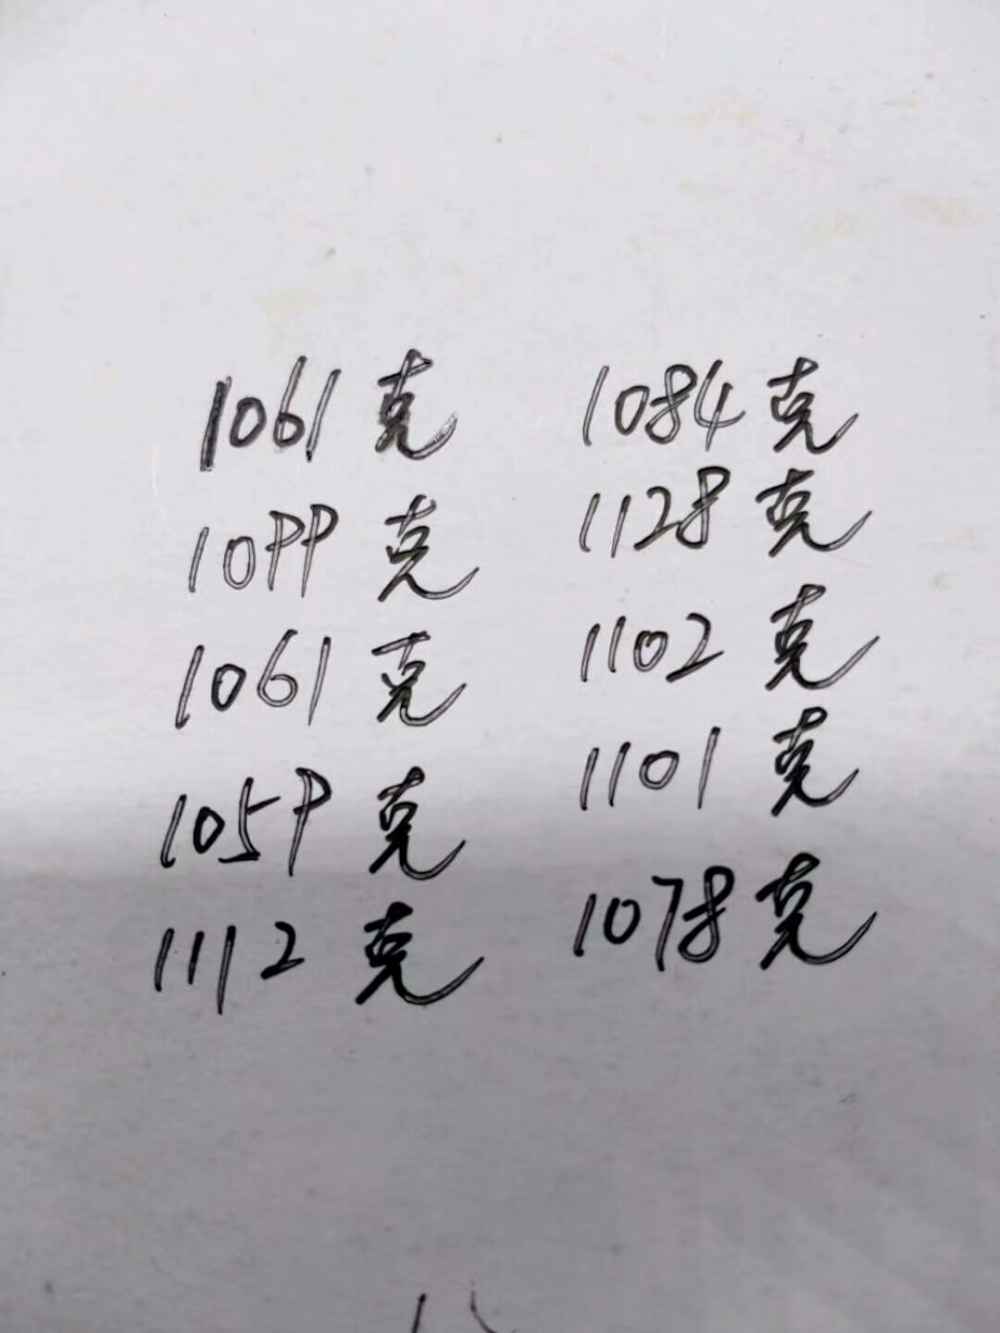 1061克
1099克
1061克
1059克
1112克
1084克
1128克
1102克
1101克
1078克